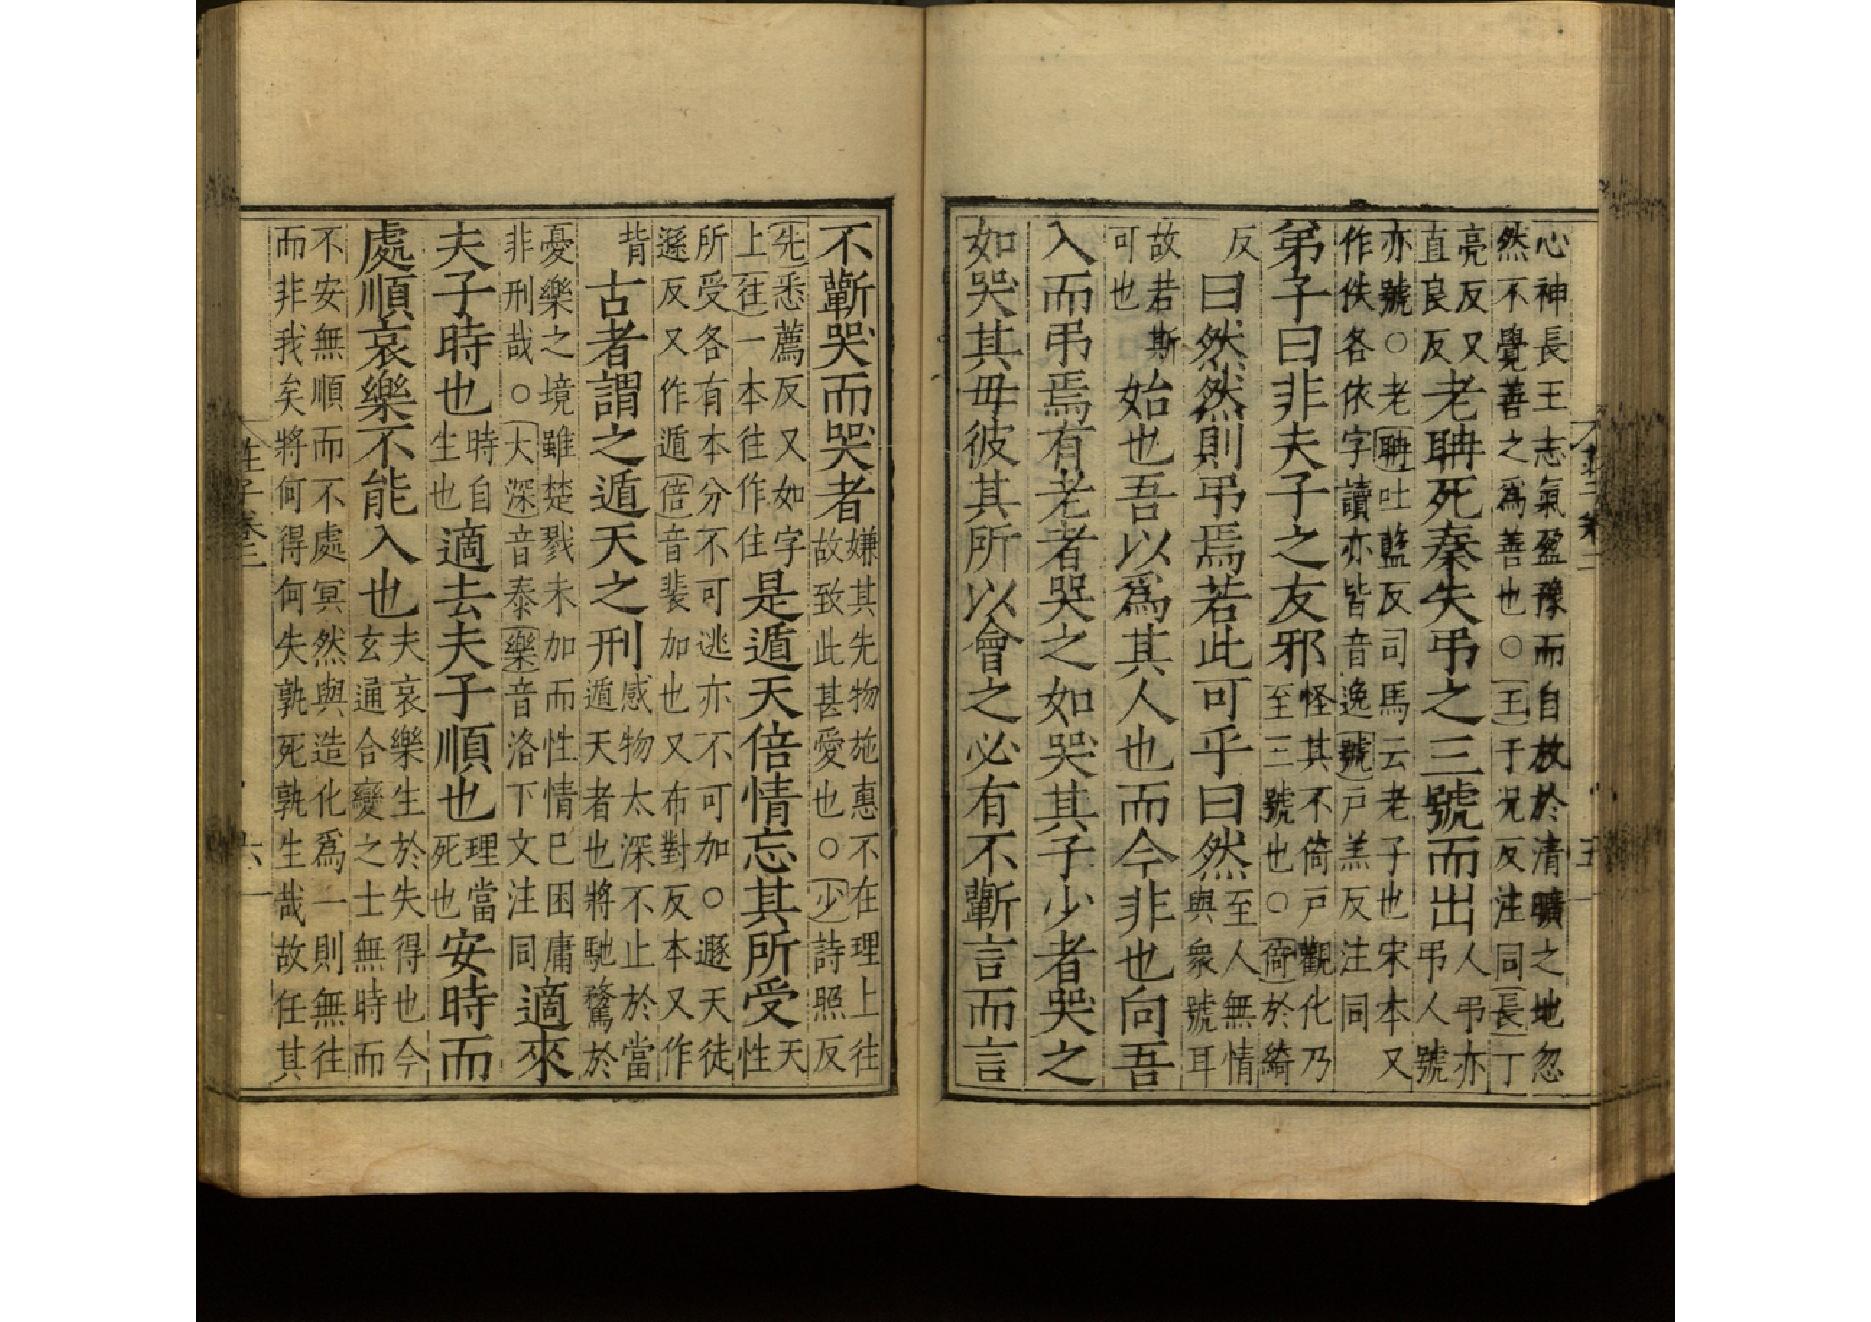 心神長王志氣盈豫而自放於清曠之地忽
然不覺善之爲善也○王于况反注同長丁
亮反又直良反老聃死秦失弔之三號而出人弔亦弔人號
亦號○老聃吐藍反司馬云老子也宋本又
作佚各依字讀亦皆音逸號戶羔反注同
弟子曰非夫子之友邪怪其不倚戶觀化乃至三號也○倚於綺
反曰然然則弔焉若此可乎曰然至人無情與衆號耳
故若斯可也始也吾以爲其人也而今非也向吾
入而弔焉有老者哭之如哭其子少者哭之
如哭其母彼其所以會之必有不蘄言而言
五
不蘄哭而哭者嫌其先物施惠不在理上往故致此甚愛也○少詩照反
先悉薦反又如字上往一本往作住是遁天倍情忘其所受天性
所受各有本分不可逃亦不可加○遯天徒
遜反又作遁倍音裴加也又布對反本又作
背古者謂之遁天之刑感物太深不止於當遁天者也將馳騖於
憂樂之境雖楚戮未加而性情已困庸非刑哉○大深音泰樂音洛下文注同適來
夫子時也時自生也適去夫子順也理當死也安時而
處順哀樂不能入也夫哀樂生於失得也今玄通合變之士無時而
不安無順而不處冥然與造化爲一則無往
而非我矣將何得何失孰死孰生哉故任其
莊子卷二 六